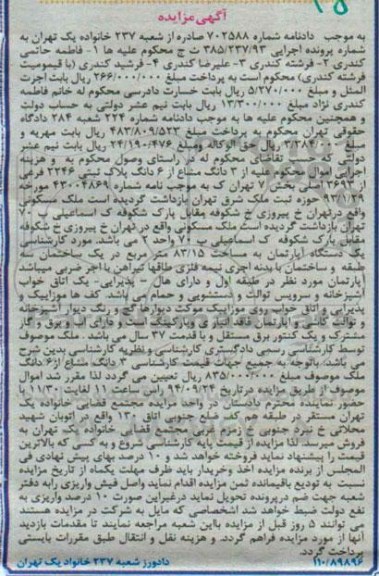 آگهی مزایده
به موجب دادنامه شماره ۷۰۲۵۸۸ صادره از شعبه ۲۳۷ خانواده یک تهران به
شماره پرونده اجرایی ۳۸۵/۲۳۷/۹۳ ث ج محکوم علیه ها ۱- فاطمه حاتمی
کندری ۲- فرشته کندری ۳- علیرضا کندری ۴- فرشید کندری (با قیمومیت
فرشته کندری) محکوم است به پرداخت مبلغ ۲۶۶/۰۰۰/۰۰۰ ریال بابت اجرت
المثل و مبلغ ۵/۲۷۰/۰۰۰ ریال بابت خسارت دادرسی محکوم له خانم فاطمه
کندری نژاد مبلغ ۱۳/۳۰۰/۰۰۰ ریال بابت نیم عشر دولتی به حساب دولت
و همچنین محکوم علیه ها به موجب دادنامه شماره ۲۲۴ شعبه ۲۸۴ دادگاه
حقوقی تهران محکوم به پرداخت مبلغ ۴۸۳/۸۰۹/۵۲۳ ریال بابت مهریه و
مبلغ ریال حق الوکاله ومبلغ ۲۴/۱۹۰/۴۷۶ ریال بابت نیم عشر
دولتی که حسب تقاضای محکوم له در راستای وصول محکوم به و هزینه
اجرایی اموال محکوم علیه از ۳ دانگ مشاع از ۶ دانگ پلاک ثبتی ۲۲۴۶ فرعی
از ۳۶۹۳ اصلی بخش ۷ تهران ک به موجب نامه شماره ۴۳۰۰۴۸۶۹ مورخه
حوزه ثبت ملک شرق تهران بازداشت گردیده است ملک مسکونی
واقع درتهران خ پیروزی خ شکوفه مقابل پارک شکوفه ک اسماعیلی پ ۷۰
تهران بازداشت گردیده است ملک مسکونی واقع در تهران خ پیروزی خ شکوفه
مقابل پارک شکوفه ک اسماعیلی پ ۷۰ واحد ۲ می باشد. مورد کارشناسی
یک دستگاه آپارتمان به مساحت ۸۳/۱۵ متر مربع در یک ساختمان سه
طبقه و ساختمان با بدنه آجری نیمه فلزی طاقها تیراهن با اجر ضربی میباشد
آپارتمان مورد نظر در طبقه اول و دارای هال - پذیرایی- یک اتاق خواب
آشپزخانه و سرویس توالت و دستشویی و حمام می باشد. کف ها موزاییک و
پذیرایی و اتاق خواب روی موزاییک موکت دیوارها گچ و رنگ دیوار آشپزخانه
و توالت کاشی و آپارتمان فاقد انباری وپارکینگ است و دارای آب و برق و گاز
مشترک و یک کنتور برق مستقل و با قدمت ۳۷ سال می باشد. ملک موصوف
توسط کارشناسی رسمی دادگستری کارشناسی و نظریه کارشناسی بدین شرح
می باشد. باتوجه به جمیع جهات قیمت کارشناسی ۳ دانگ مشاع از۶ دانگ
ملک موصوف مبلغ ۸۳۵/۰۰۰/۰۰۰ ریال تعیین می گردد لذا مقرر شد اموال
موصوف از طریق مزایده در تاریخ ۹۴/۰۹/۲۴ راس ساعت ۱۱ لغایت ۱۱/۳۰ با
حضور نماینده محترم دادستان در واحد مزایده مجتمع قضایی خانواده یک
تهران مستقر در طبقه هم کف ضلع جنوبی اتاق ۱۳۰ واقع در اتوبان شهید
محلاتی خ نبرد جنوبی خ زمزم غربی مجتمع قضایی خانواده یک تهران به
فروش میرسد لذا مزایده از قیمت پایه کارشناسی شروع و به کسی که بالاترین
قیمت را پیشنهاد نماید فروخته خواهد شد و ۱۰ درصد بهای پیش نهادی فی
المجلس از برنده مزایده اخذ وخریدار باید ظرف مهلت یکماه از تاریخ مزایده
نسبت به تودیع باقیمانده ثمن مزایده اقدام نماید واصل فیش واریزی رابه دفتر
شعبه جهت ضم درپرونده تحویل نماید درغیراین صورت ۱۰ درصد واریزی به
نفع دولت ضبط خواهد شد اشخاصی که مایل به شرکت در مزایده هستند
می توانند ۵ روز قبل از مزایده بااین شعبه مراجعه نمایند تا مقدمات بازدید
آنها از مورد مزایده فراهم گردد. و هزینه نقل و انتقال طبق مقررات بایستی
پرداخت گردد.
۱۱۰/۸۹۸۹۶ دادورز شعبه ۲۳۷ خانواد یک تهران